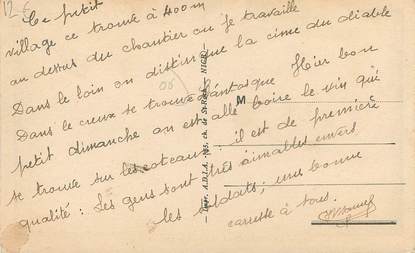 12 €
Ce petit
village ce trouve à 400m
au dessus du chantier ou je travaille
Dans le loin on distingue la cime du diable
Dans le creux se trouve Cantasque Hier bon
petit dimanche on est allé boire le vin qui
se trouve sur les coteaux : il est de première
qualité : Les gens sont très aimables envers
les soldats ; une bonne
caresse à tous.
M
Impr. A.D.I.A. ch. de St-Roch NICE